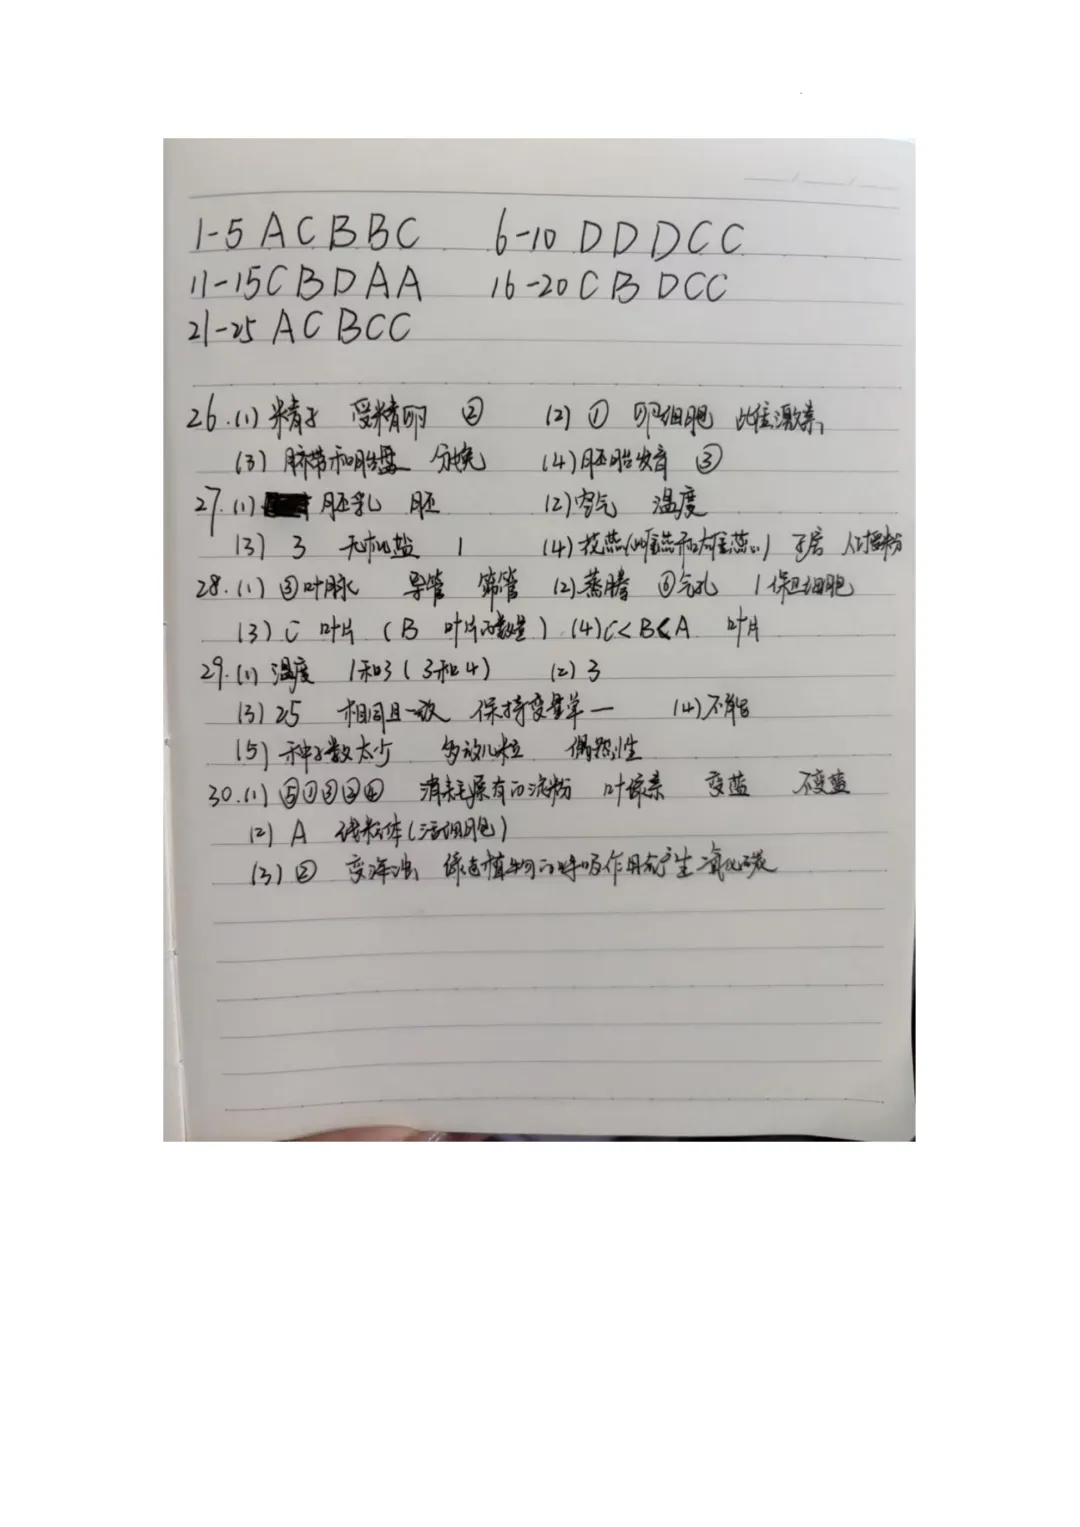 1-5 A C B B C 6-10 D D D C C
11-15 C B D A A 16-20 C B D C C
21-25 A C B C C
26.(1) 精子 受精卵 ② (2) ① 卵细胞 雌性激素
(3) 脐带和胎盘 分娩 (4) 胚胎发育 ③
27.(1) 胚乳 胚 (2) 空气 温度
(3) 3 无机盐 1 (4) 花蕊(雌蕊和雄蕊) 子房 人工授粉
28.(1) ③叶脉 导管 筛管 (2) 蒸腾 ⑥气孔 1 保卫细胞
(3) C 叶片 (B 叶片的数量) (4) C<B<A 叶片
29.(1) 温度 1和3(3和4) (2) 3
(3) 25 相同且一致 保持变量单一 (4) 不能
(5) 种子数太少 多放几粒 偶然性
30.(1) ⑤①③②④ 消耗原有的淀粉 叶绿素 变蓝 不变蓝
(2) A 线粒体(活细胞)
(3) ② 变浑浊 绿色植物的呼吸作用能产生二氧化碳